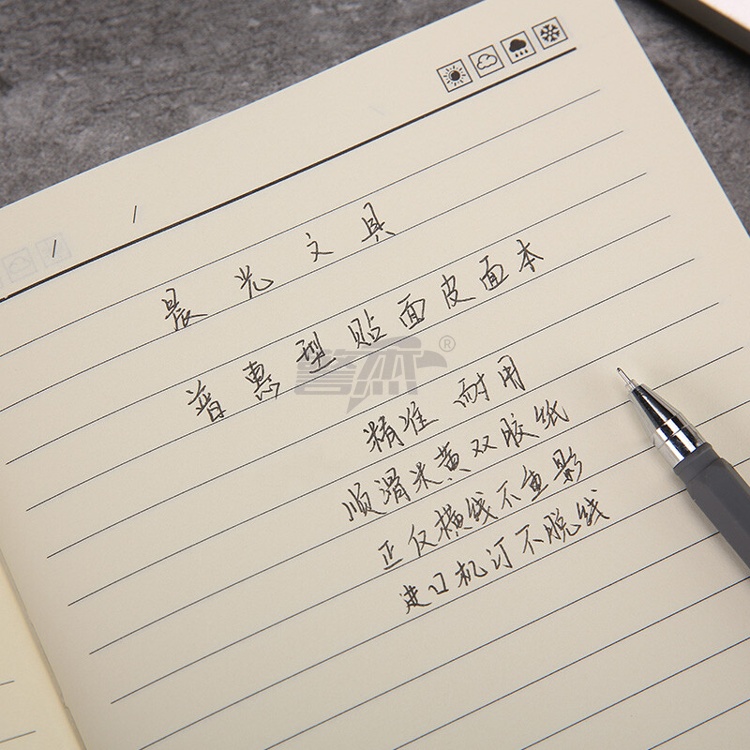 / /
晨光文具
普惠型贴面皮面本
精准 耐用
顺滑米黄双胶纸
正仅横线不重影
进口机订不脱线
®